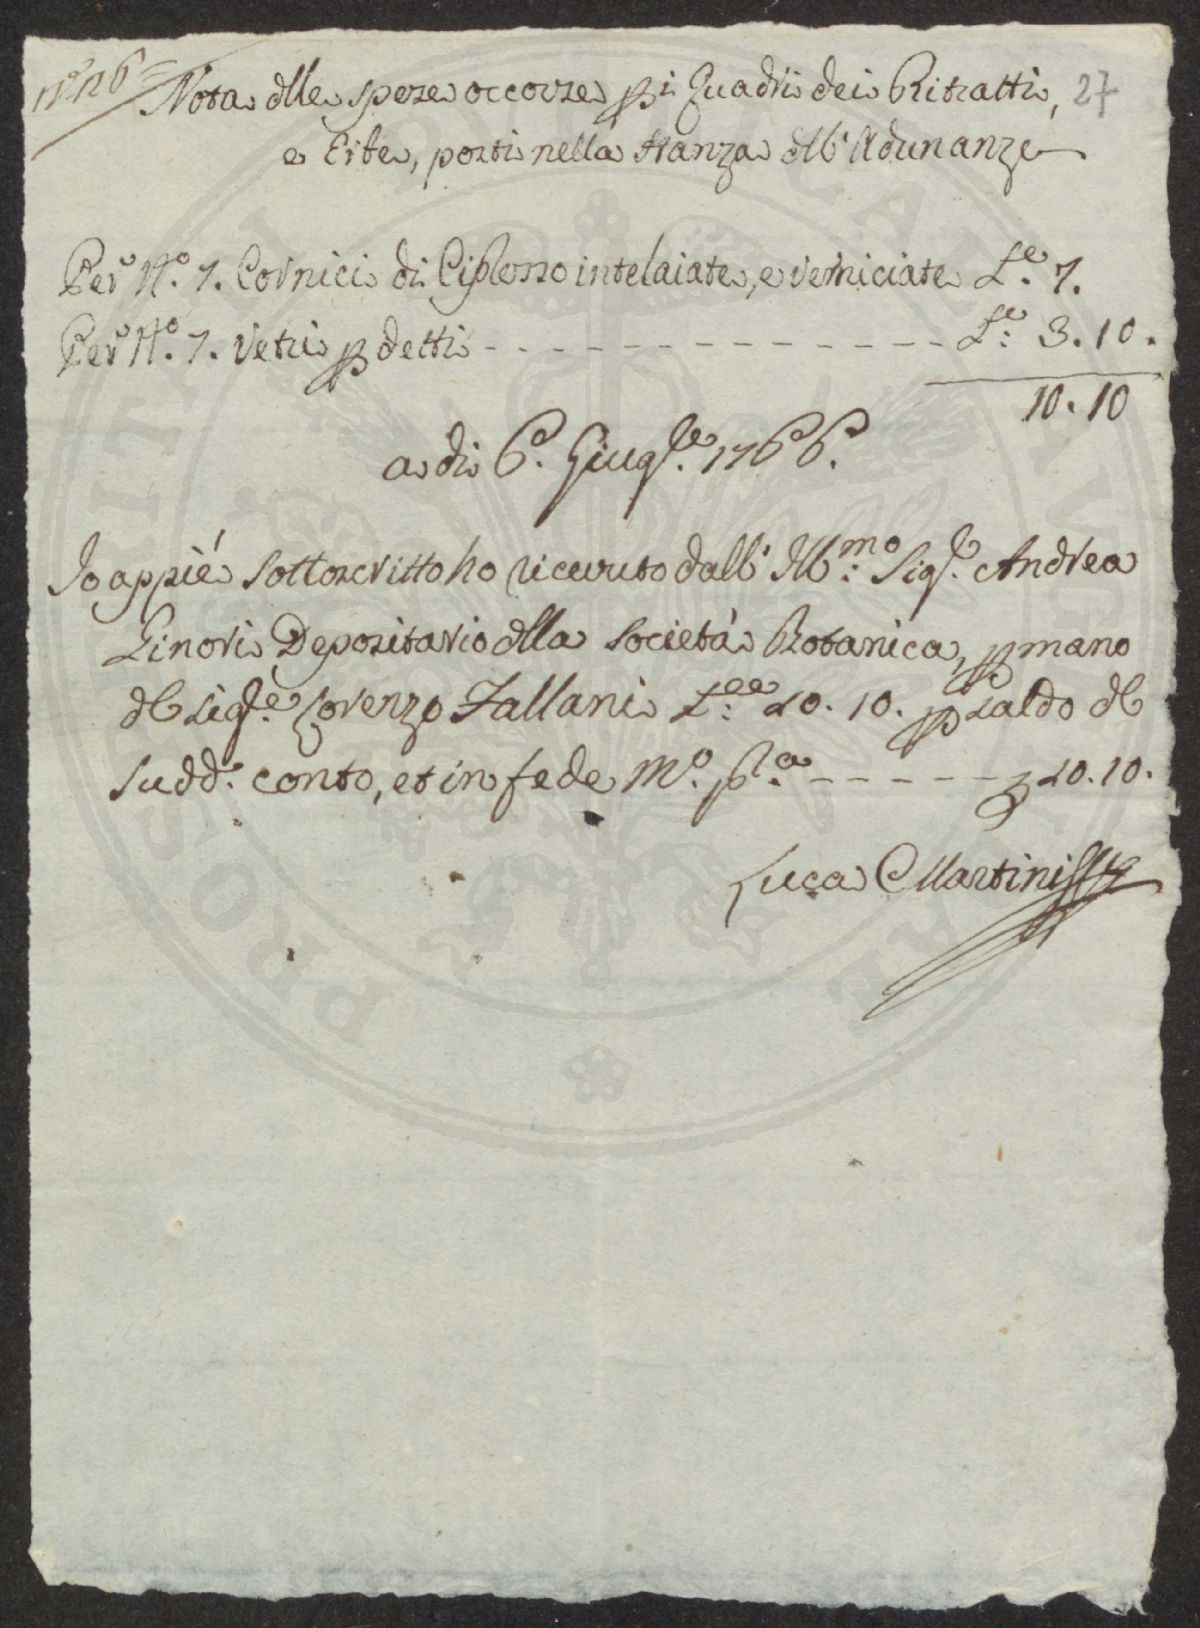 N° 126=
Nota dlle spese occorse p i Quadri dei Ritratti, 27
e Erbe, posti nella stanza dll'Adunanze
Per N.° 7. Cornici di Cipresso intelaiate, e verniciate L.e 7.
Per N.° 7. Vetri p detti - - - - - - - - - - - - - - L.e 3.10.
10.10
a di 6. Giug.e 1766.
Io appié sottoscritto ho ricevuto dall' Ill.mo Sig.e Andrea
Ginori Depositario dlla Societá Botanica, p mano
dl Sig.re Lorenzo Fallani L.ee 10.10. p saldo dl
sudd.° conto, et in fede M.° p.a - - - - - - 10.10.
Luca Martini
PROSPERITATI PUBLICAE